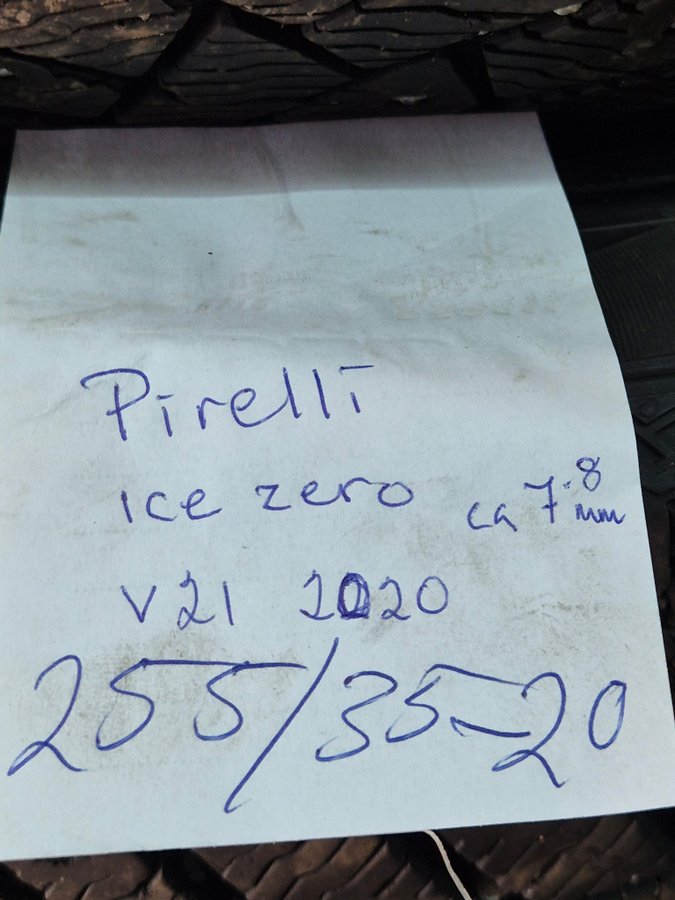 Pirelli
ice zero ca 7.8 mm
v21 2020
255/35-20